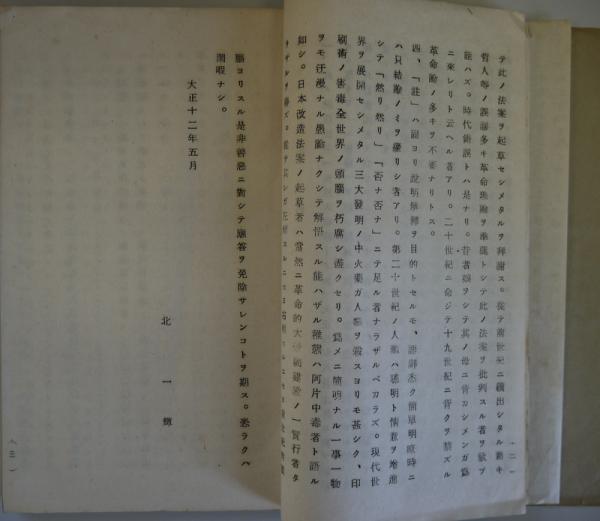 テ此ノ法案ヲ起草セシメタルヲ拜謝ス。從テ前世紀ニ續出シタル
哲人等ノ誤謬多キ革命理論ヲ準繩トシテ此ノ法案ヲ批判スル者ヲ歡ブ
能ハズ。時代錯誤トハ是ナリ。
ニ來レリト云ヘル者アリ。二十世紀ニ命ジテ十九世紀ニ背クヲ禁ズル
革命論ノ多キヲ不要ナリトス。
四、「註」ハ固ヨリ說明解釋ヲ目的トセルモ、語辭杰ク簡單明瞭時ニ
ハ只結論ノミヲ綴リシ者アリ。第二十世紀ノ人類ハ聰明ト情意ヲ增進
シテ「然リ然リ」「否ナ否ナ」ニテ足ル者ナラザルベカラズ。現代世
界ヲ展開セシメタル三大發明ノ中火藥ガ人類ヲ殺スヨリモ甚シク、印
刷術ノ害毒全世界ノ頭腦ヲ朽腐シ盡クセリ。爲メニ簡明ナル一事一物
ヲモ汗漫ナル愚論ナクシテ解悟スル能ハザル穉態ハ阿片中毒者ト語ル
如シ。日本改造法案ノ起草者ハ當然ニ革命的大
(二)
腦ヨリスル是非善惡ニ對シテ應答ヲ免除サレンコトヲ期ス。恐ラクハ
閑暇ナシ。
大正十二年五月
北 一 輝
(三)